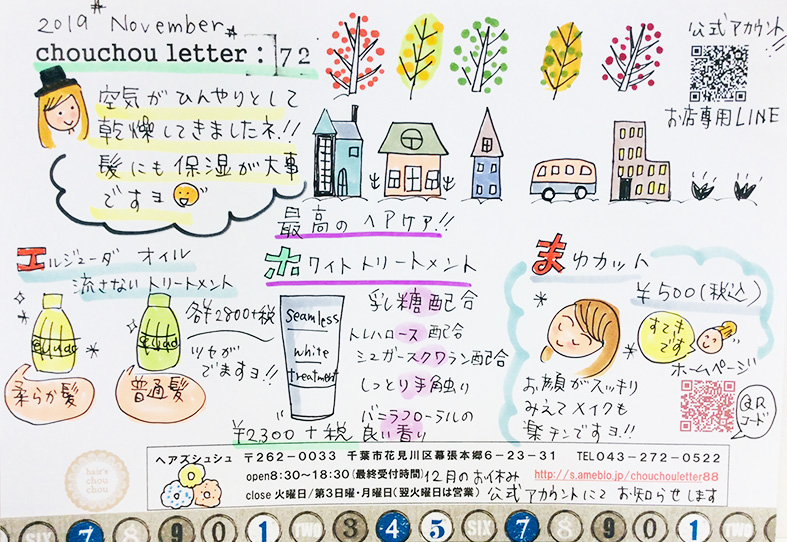 2019 November
chouchou letter : 72
公式アカウント!!
お店専用LINE
空気がひんやりとして
乾燥してきましたネ!!
髪にも保湿が大事
ですヨ
最高のヘアケア!!
エルジューダ オイル
流さないトリートメント
各¥2800+税
ツヤが
でますヨ!!
柔らか髪
普通髪
ホワイトトリートメント
seamless
white
treatment
¥2,300+税
乳糖配合
トレハロース配合
シュガースクワラン配合
しっとり手触り
バニラフローラルの
良い香り
まゆカット
¥500(税込)
すてき
です
ホームページ
QR
コード
お顔がスッキリ
みえてメイクも
楽チンですヨ!!
hair's
chou
chou
ヘアズシュシュ 〒262-0033 千葉市花見川区幕張本郷6-23-31 TEL043-272-0522
open8:30~18:30(最終受付時間) 12月のお休み http://s.ameblo.jp/chouchouletter88
close 火曜日/第3日曜・月曜日(翌火曜日は営業) 公式アカウントにてお知らせします
SIX 7 8 9 0 1 TWO 3 4 5 SIX 7 8 9 0 1 TWO